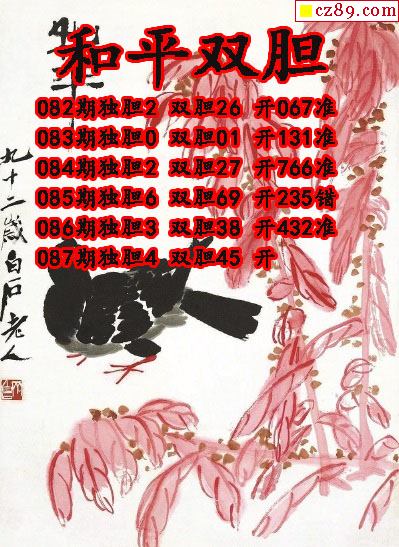 cz89.com
和平
和平双胆
082期独胆2 双胆26 开067准
083期独胆0 双胆01 开131准
084期独胆2 双胆27 开766准
085期独胆6 双胆69 开235错
086期独胆3 双胆38 开432准
087期独胆4 双胆45 开
九十二岁白石老人